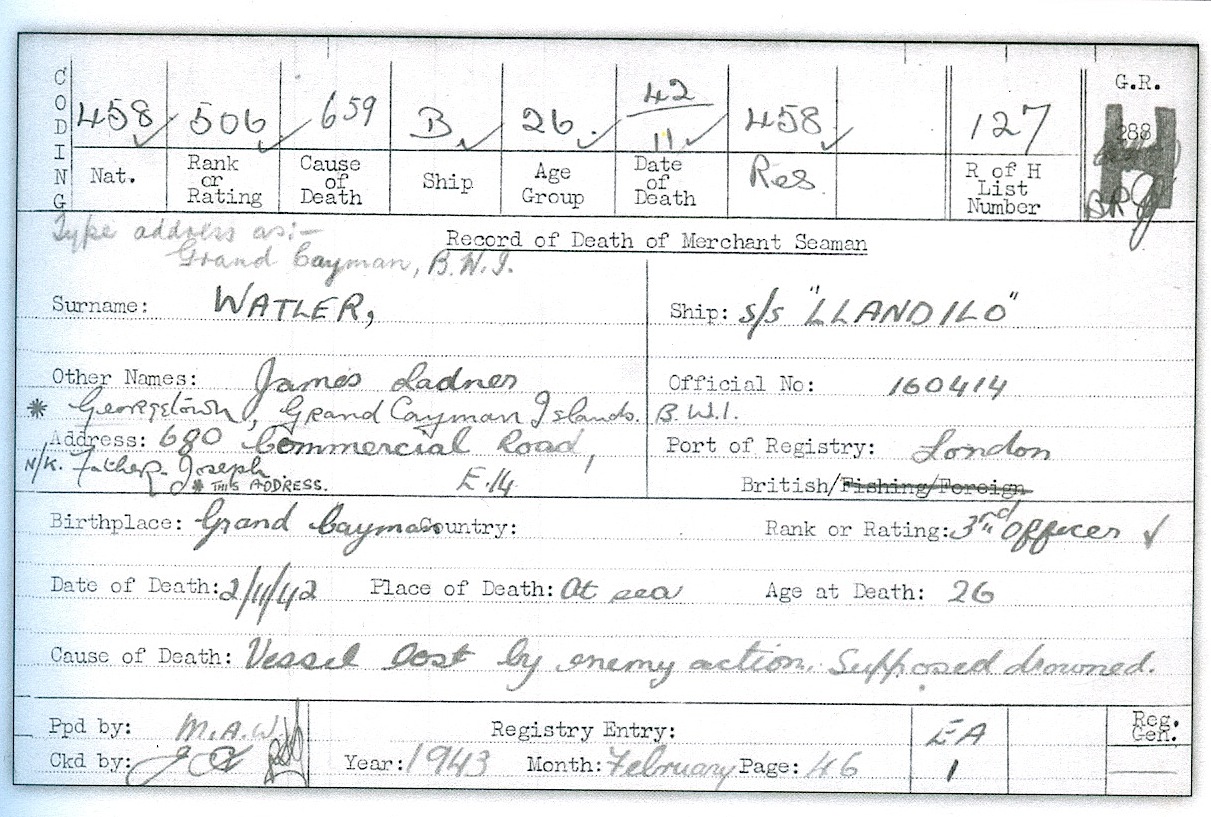 CODING
458 506 659 B 26. 42/11 458 127 G.R.
288
Nat. Rank or Rating Cause of Death Ship Age Group Date of Death Res. R of H List Number
Type address as:-
Grand Cayman, B.W.I.
Record of Death of Merchant Seaman
Surname: WATLER,
Ship: s/s "LLANDILO"
Other Names: James Ladner
Official No: 160414
* Georgetown, Grand Cayman Islands. B.W.I.
Address: 680 Commercial Road,
Port of Registry: London
N/K. Father. Joseph.
* THIS ADDRESS.
E.14
British/Fishing/Foreign
Birthplace: Grand Cayman Country:
Rank or Rating: 3rd Officer
Date of Death: 2/11/42 Place of Death: At sea Age at Death: 26
Cause of Death: Vessel lost by enemy action. Supposed drowned.
Ppd by: M.A.W.
Registry Entry:
EA
Reg. Gen.
Ckd by:
Year: 1943 Month: February Page: 46
1